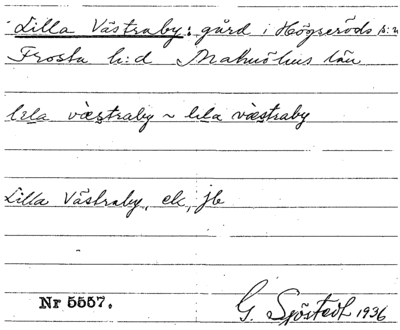 Lilla Västraby: gård i Högseröds s:n
Frosta h:d Malmöhus län
lila västraby ~ lila västraby
Lilla Västraby, ek, jb
Nr 5557.
G. Sjöstedt 1936